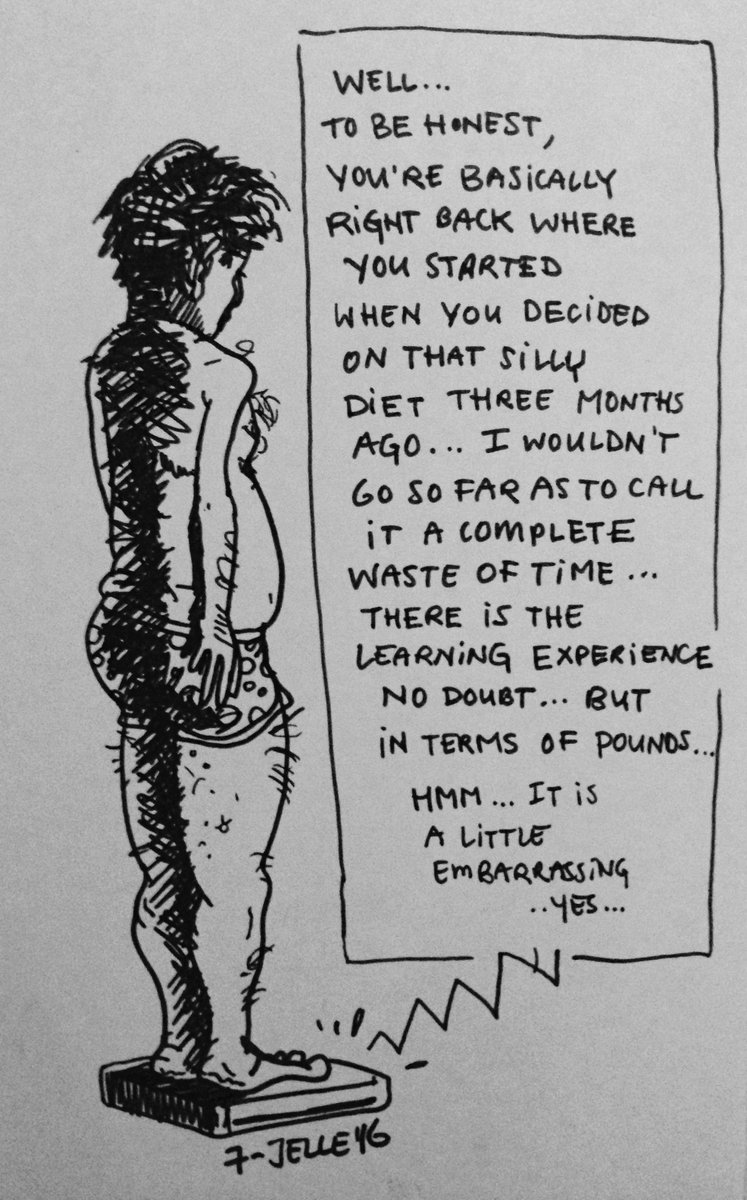 WELL...
TO BE HONEST,
YOU'RE BASiCALLY
RiGHT BACK WHERE
YOU STARTED
WHEN YOU DECiDED
ON THAT SiLLY
DiET THREE MONTHS
AGO... I WOULDN'T
GO SO FAR AS TO CALL
iT A COMPLETE
WASTE OF TiME...
THERE iS THE
LEARNiNG EXPERiENCE
NO DOUBT... BUT
iN TERMS OF POUNDS...
HMM... IT iS
A LiTTLE
EmBARRASSiNG
..YES...
7-JELLE'16